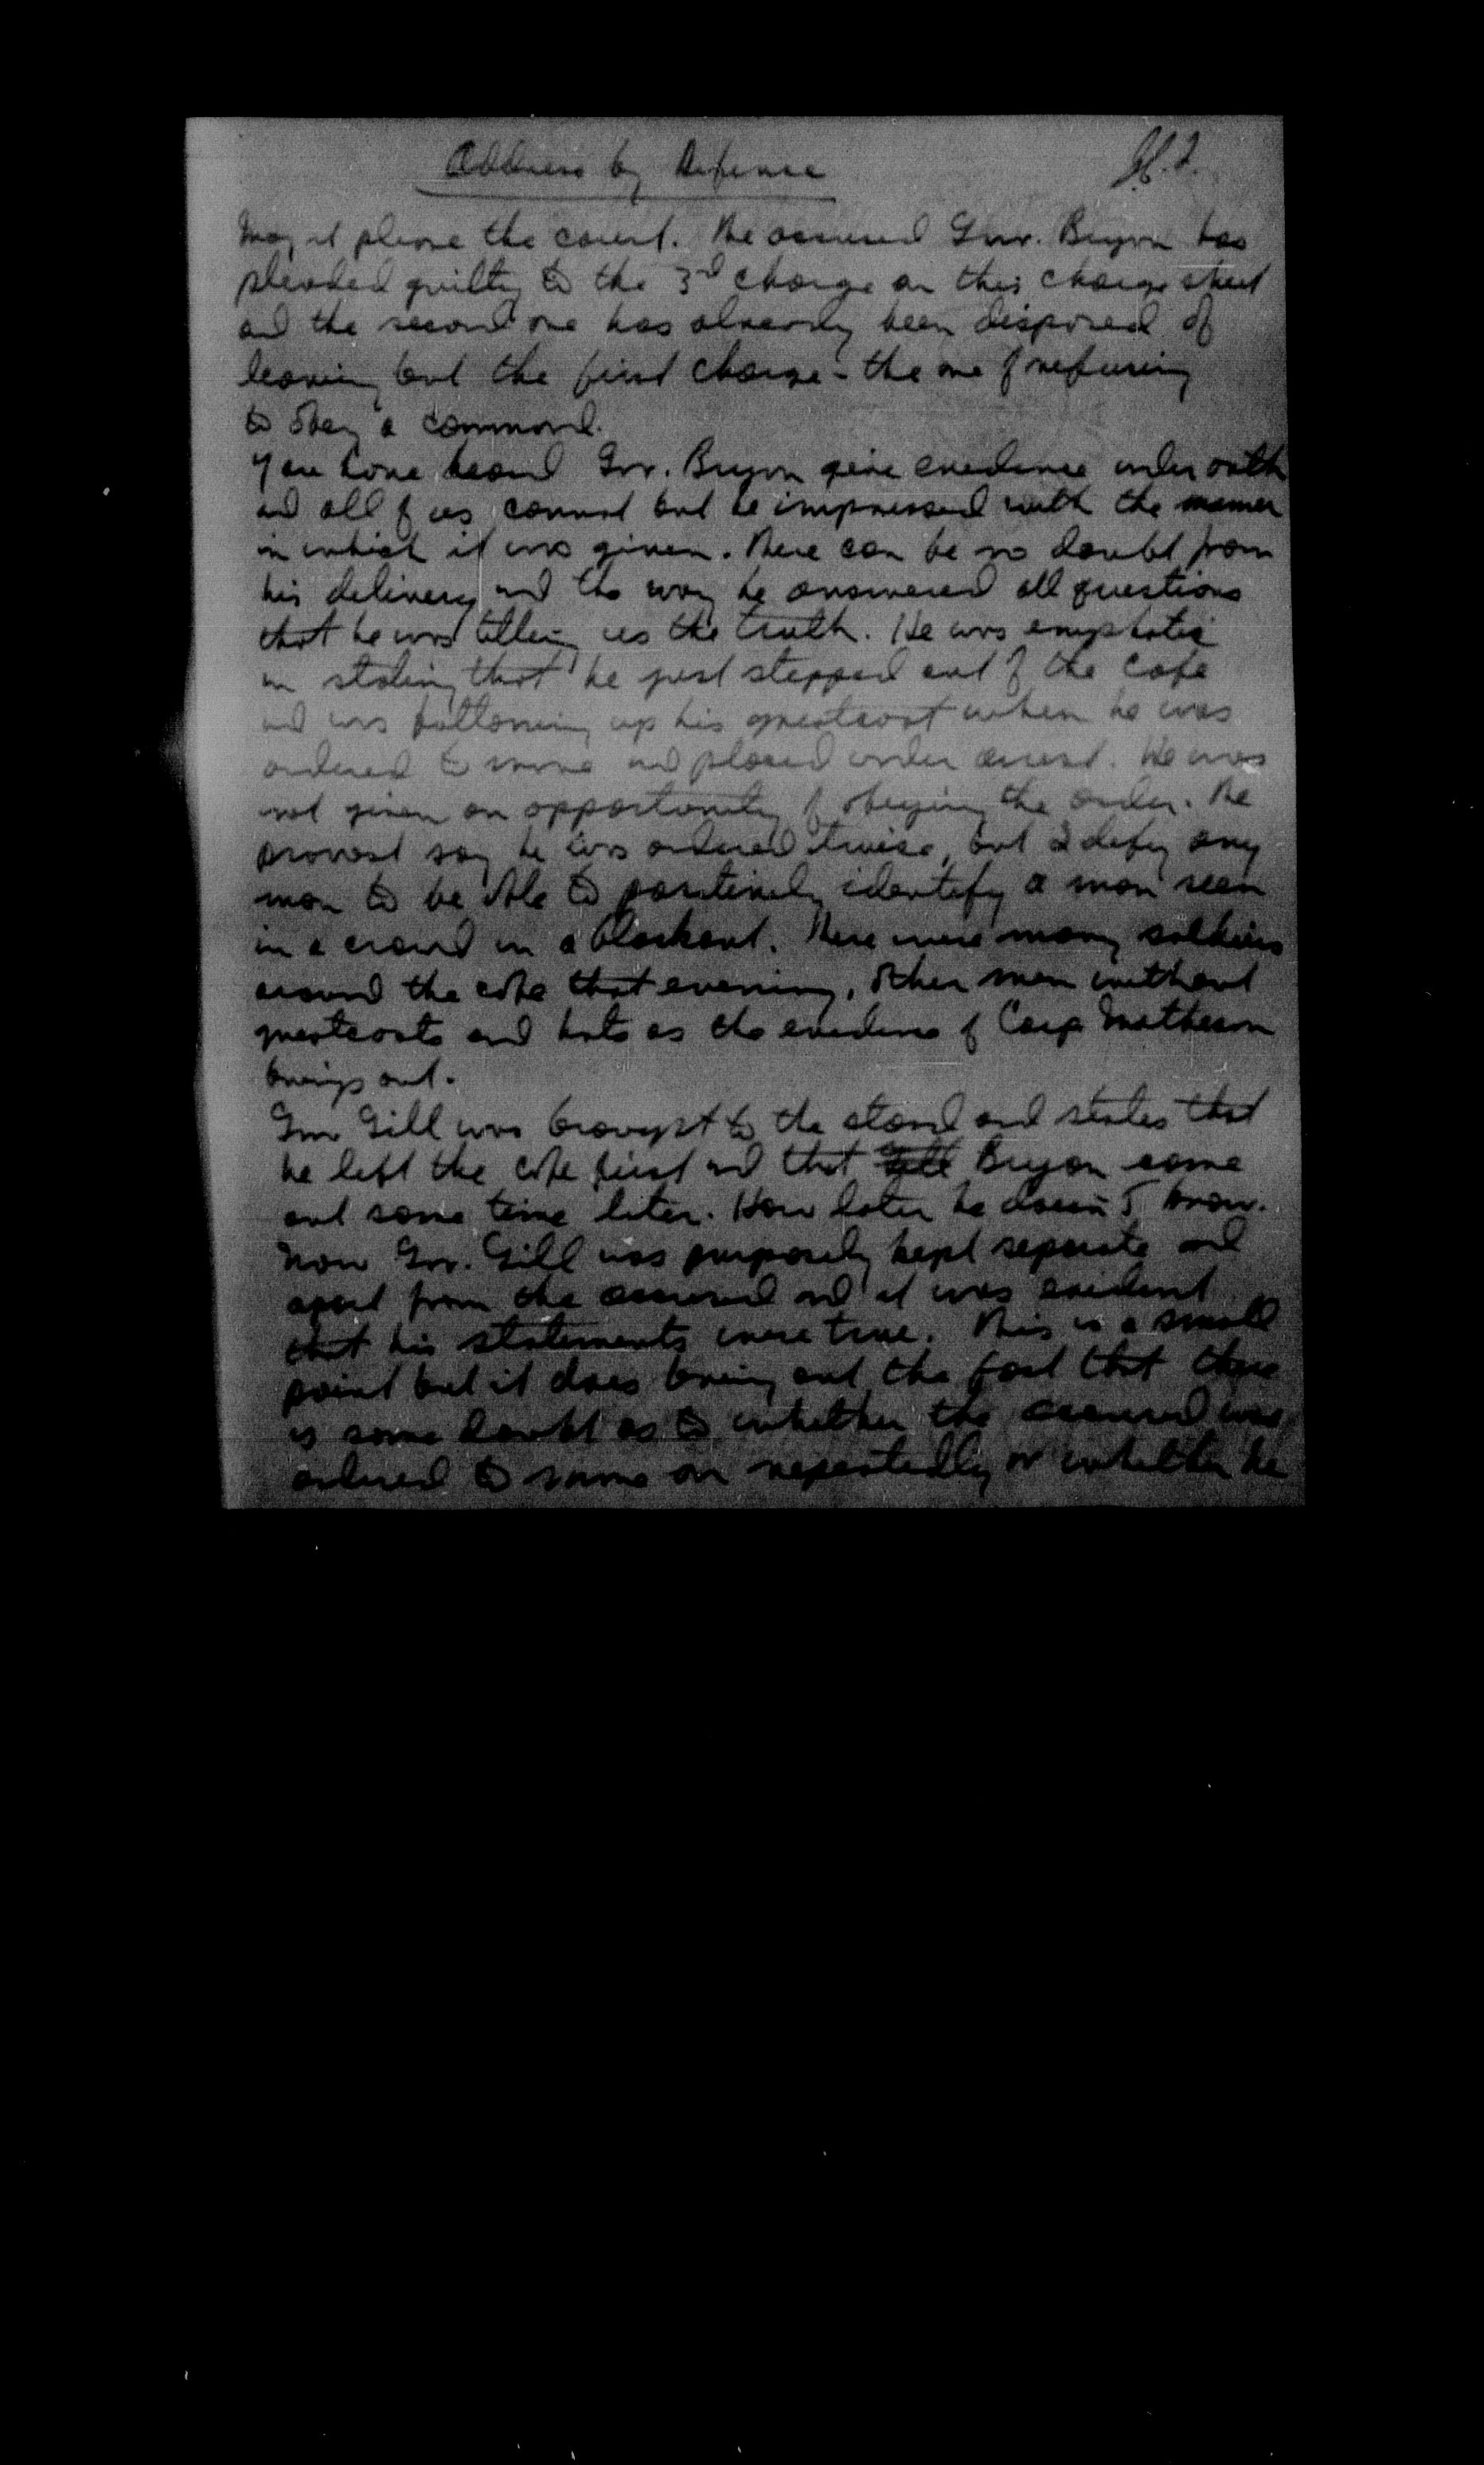 Address by Defence
May it please the court. The accused Gnr. Bryon has
pleaded guilty to the 3rd charge on this charge sheet
and the second one has already been disposed of
leaving but the first charge - the one of refusing
to obey a command.
You have heard Gnr. Bryon give evidence under oath
and all of us cannot but be impressed with the manner
in which it was given. There can be no doubt from
his delivery and the way he answered all questions
that he was telling us the truth. He was emphatic
in stating that he just stepped out of the cafe
and was following up his greatcoat when he was
ordered to move and placed under arrest. He was
not given an opportunity of obeying the order. The
provost say he was ordered twice, but I defy any
man to be able to positively identify a man seen
in a crowd in a blackout. There were many soldiers
around the cafe that evening, other men without
greatcoats and hats as the evidence of Corp Matheson
brings out.
Gnr Gill was brought to the stand and states that
he left the cafe first and that Gill Bryon came
out some time later. How later he doesn't know.
Now Gnr. Gill was purposely kept separate and
apart from the accused and it was evident
that his statements were true. This is a small
point but it does bring out the fact that there
is some doubt as to whether the accused was
ordered to move on repeatedly or whether he